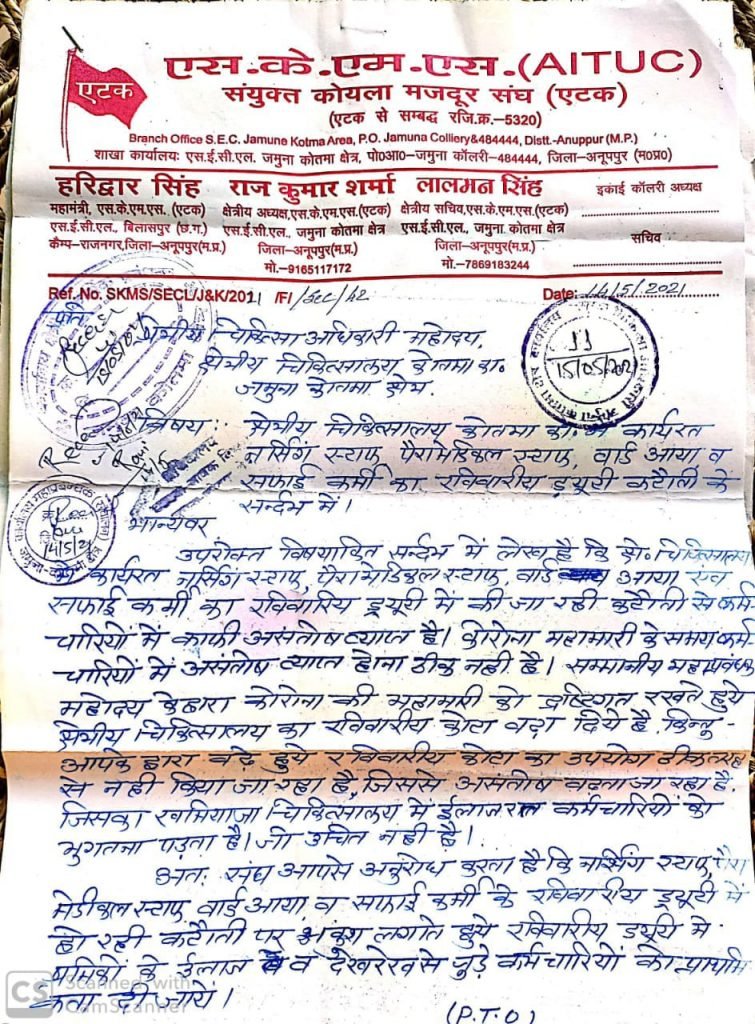 एटक
एस.के.एम.एस.(AITUC)
संयुक्त कोयला मजदूर संघ (एटक)
(एटक से सम्बद्ध रजि.क्र.–5320)
Branch Office S.E.C. Jamune Kotma Area, P.O. Jamuna Colliery&484444, Distt.-Anuppur (M.P.)
शाखा कार्यालयः एस.ई.सी.एल. जमुना कोतमा क्षेत्र, पो0आ0-जमुना कॉलरी-484444, जिला-अनूपपुर (म0प्र0)
हरिद्वार सिंह राज कुमार शर्मा लालमन सिंह इकाई कॉलरी अध्यक्ष
महामंत्री, एस.के.एम.एस. (एटक) क्षेत्रीय अध्यक्ष,एस.के.एम.एस.(एटक) क्षेत्रीय सचिव,एस.के.एम.एस.(एटक)
एस.ई.सी.एल. बिलासपुर (छ.ग.) एस.ई.सी.एल., जमुना कोतमा क्षेत्र एस.ई.सी.एल., जमुना कोतमा क्षेत्र सचिव
कैम्प-राजनगर,जिला-अनूपपुर(म.प्र.) जिला-अनूपपुर(म.प्र.) जिला-अनूपपुर(म.प्र.)
मो.–9165117172 मो.–7869183244
Ref. No. SKMS/SECL/J&K/2011 /F/ /Sec/42 Date: 14/5/2021
प्रति,
क्षेत्रीय चिकित्सा अधिकारी महोदय,
क्षेत्रीय चिकित्सालय कोतमा का.
जमुना कोतमा क्षेत्र.
15/05/2021
विषय:: क्षेत्रीय चिकित्सालय कोतमा का. में कार्यरत
नर्सिंग स्टाफ, पैरामेडिकल स्टाफ, वार्ड आया व
सफाई कर्मी का रविवारीय ड्यूटी कटौती के
सन्दर्भ में।
मान्यवर
उपरोक्त विषयांकित सन्दर्भ में लेख है कि क्षे. चिकित्सालय
में कार्यरत नर्सिंग स्टाफ, पैरामेडिकल स्टाफ, वार्ड आया एवं
सफाई कर्मी का रविवारिय ड्यूटी में की जा रही कटौती से कर्म
चारियों में काफी असंतोष व्याप्त है। कोरोना महामारी के समय कर्म
चारियों में असंतोष व्याप्त होना ठीक नही है। सम्मानीय महाप्रबंधक
महोदय केद्वारा कोरोना की महामारी को द्रष्टिगत रखते हुये
क्षेत्रीय चिकित्सालय का रविवारीय कोटा बढ़ा दिये है. किन्तु-
आपके द्वारा बढ़े हुये रविवारीय कोटा का उपयोग ठीक तरह
से नही किया जा रहा है, जिससे असंतोष बढ़ता जा रहा है.
जिसका खमियाजा चिकित्सालय में ईलाजरत कर्मचारियों को
भुगतना पड़ता है। जो उचित नही है।
अतः संघ आपसे अनुरोध करता है कि नर्सिंग स्टाफ, पैरा
मेडीकल स्टाफ वार्ड आया, व सफाई कर्मी के रविवारीय ड्यूटी में
हो रही कटौती पर अंकुश लगाते हुये रविवारीय ड्यूटी में
श्रमिकों के ईलाज व देखरेख से जुड़े कर्मचारियों को प्राथमि
कता दी जाये।
(P.T.O)
CS Scanned with
CamScanner